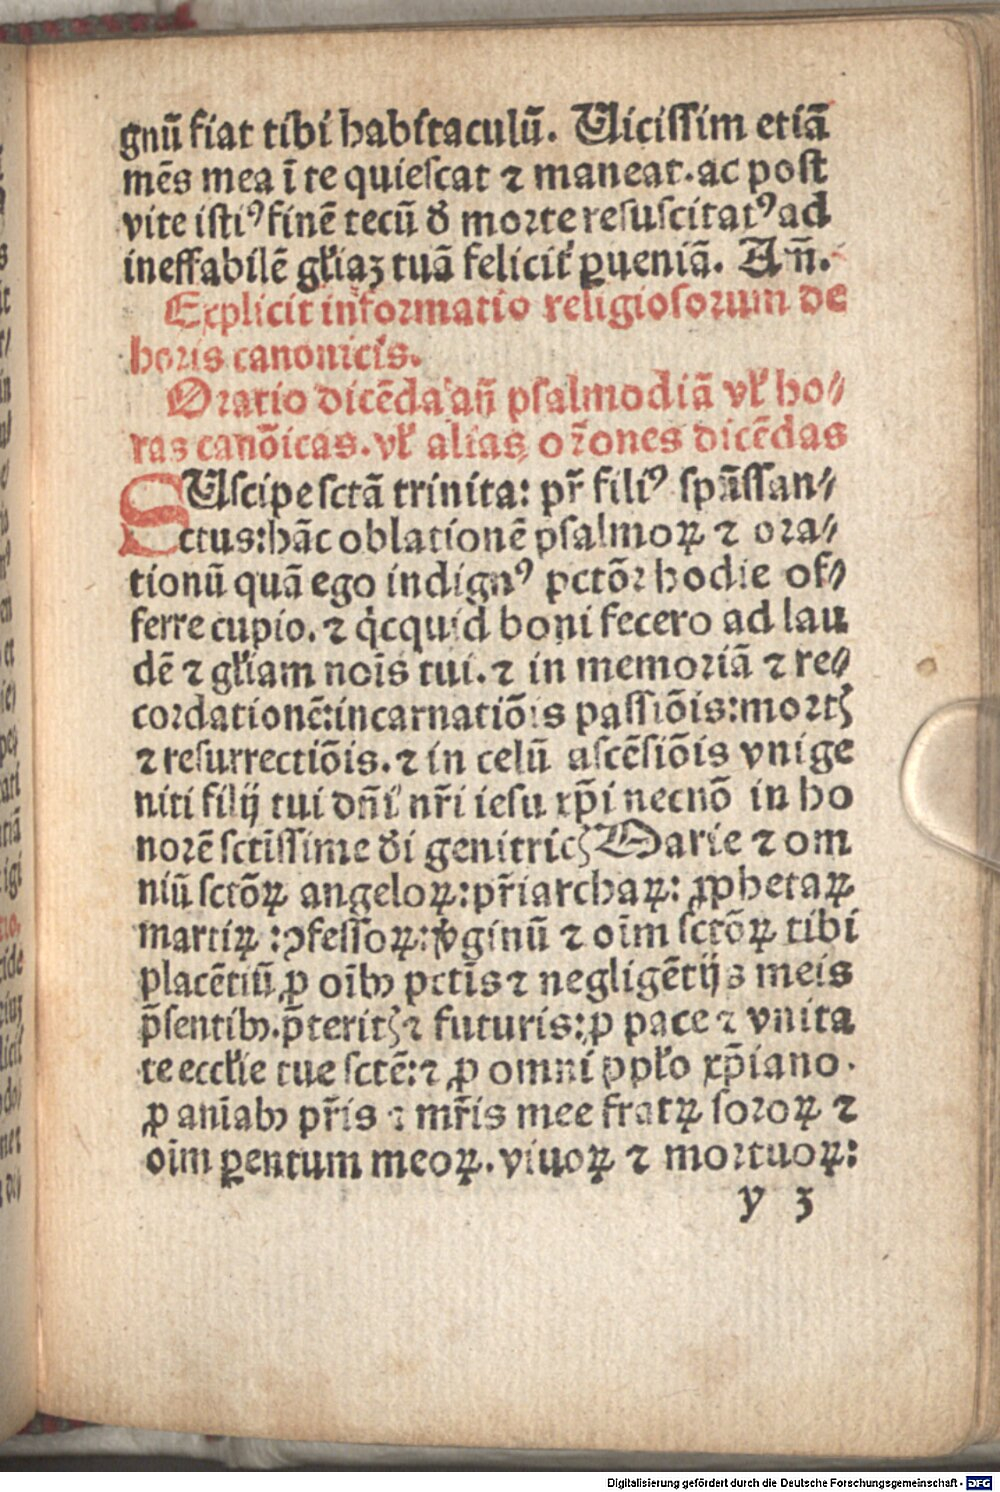 gnū fiat tibi habitaculū. Uicissim etiā
mēs mea ī te quiescat ⁊ maneat. ac post
vite istiꝰ finē tecū đ morte resuscitatꝰ ad
ineffabilē gl̄iaꝫ tuā felicit̉ ꝑueniā. Am̄.
Explicit informatio religiosorum de
horis canonicis.
Oratio dicēda an̄ psalmodiā vl̉ ho⸗
ras canōicas. vl̉ alias or̄ones dicēdas
SUscipe sctā trinita: pr̄ filiꝰ spūssan⸗
ctus: hāc oblationē psalmoꝝ ⁊ ora⸗
tionū quā ego indignꝰ pctōr hodie of⸗
ferre cupio. ⁊ qͥcquid boni fecero ad lau
dē ⁊ gl̄iam noīs tui. ⁊ in memoriā ⁊ re⸗
cordationē: incarnatiōis passiōis: mortꝭ
⁊ resurrectiōis. ⁊ in celū ascēsiōis vnige
niti filij tui dn̄i nr̄i iesu xp̄i necnō in ho
norē sctīssime đi genitricꝭ Marie ⁊ om
niū sctōꝝ angeloꝝ: pr̄iarchaꝝ: ꝓphetaꝝ
martiꝝ: ꝯfessoꝝ: v̉ginū ⁊ oīm sctōꝝ tibi
placētiū ꝓ oībꝫ pctīs ⁊ negligētijs meis
p̄sentibꝫ. p̄teritꝭ ⁊ futuris: ꝓ pace ⁊ vnita
te eccl̄ie tue sctē: ⁊ ꝓ omni ppl̄o xp̄iano.
ꝓ anīabꝫ pr̄is ⁊ mr̄is mee fratꝝ soroꝝ ⁊
oīm ꝑentum meoꝝ. viuoꝝ ⁊ mortuoꝝ:
y 3
Digitalisierung gefördert durch die Deutsche Forschungsgemeinschaft - DFG